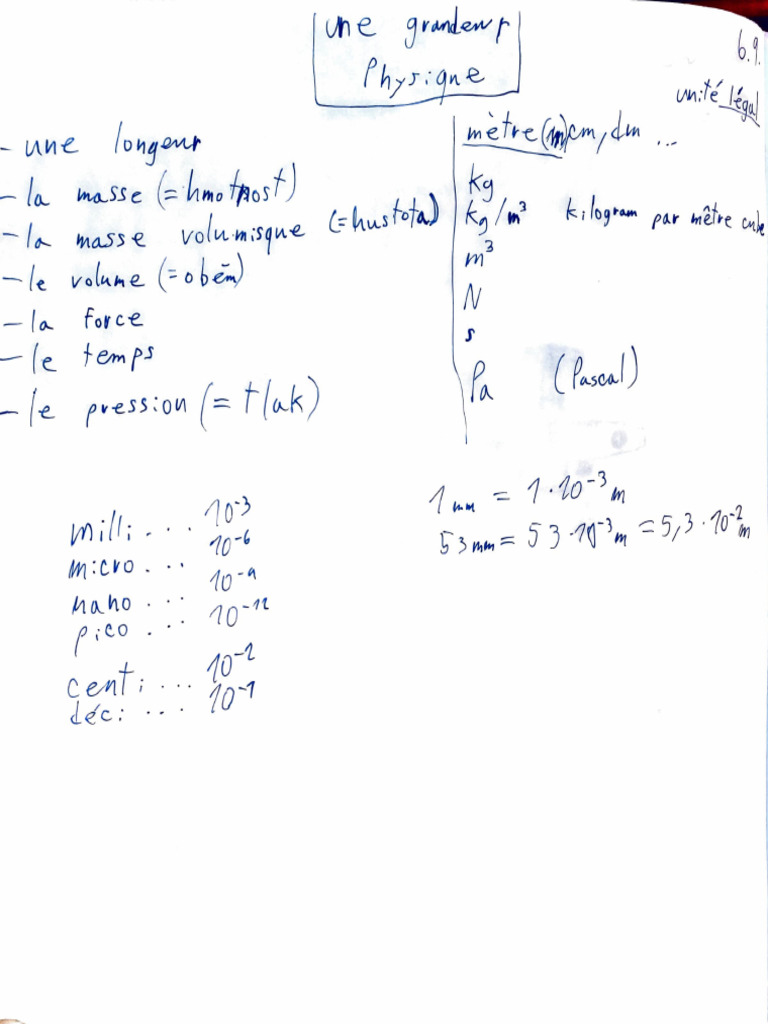 une grandeur
Physique
6.9.
unité légal
- une longeur
mètre (m) cm, dm ...
- la masse (= hmotnost)
kg
- la masse volumisque (= hustota)
kg/m³ kilogram par mêtre cube
- le volume (= objem)
m³
- la force
N
- le temps
s
- le pression (= tlak)
Pa (Pascal)
milli ... 10⁻³
micro ... 10⁻⁶
nano ... 10⁻⁹
pico ... 10⁻¹²
centi ... 10⁻²
déci ... 10⁻¹
1 mm = 1 · 10⁻³ m
53 mm = 53 · 10⁻³ m = 5,3 · 10⁻² m